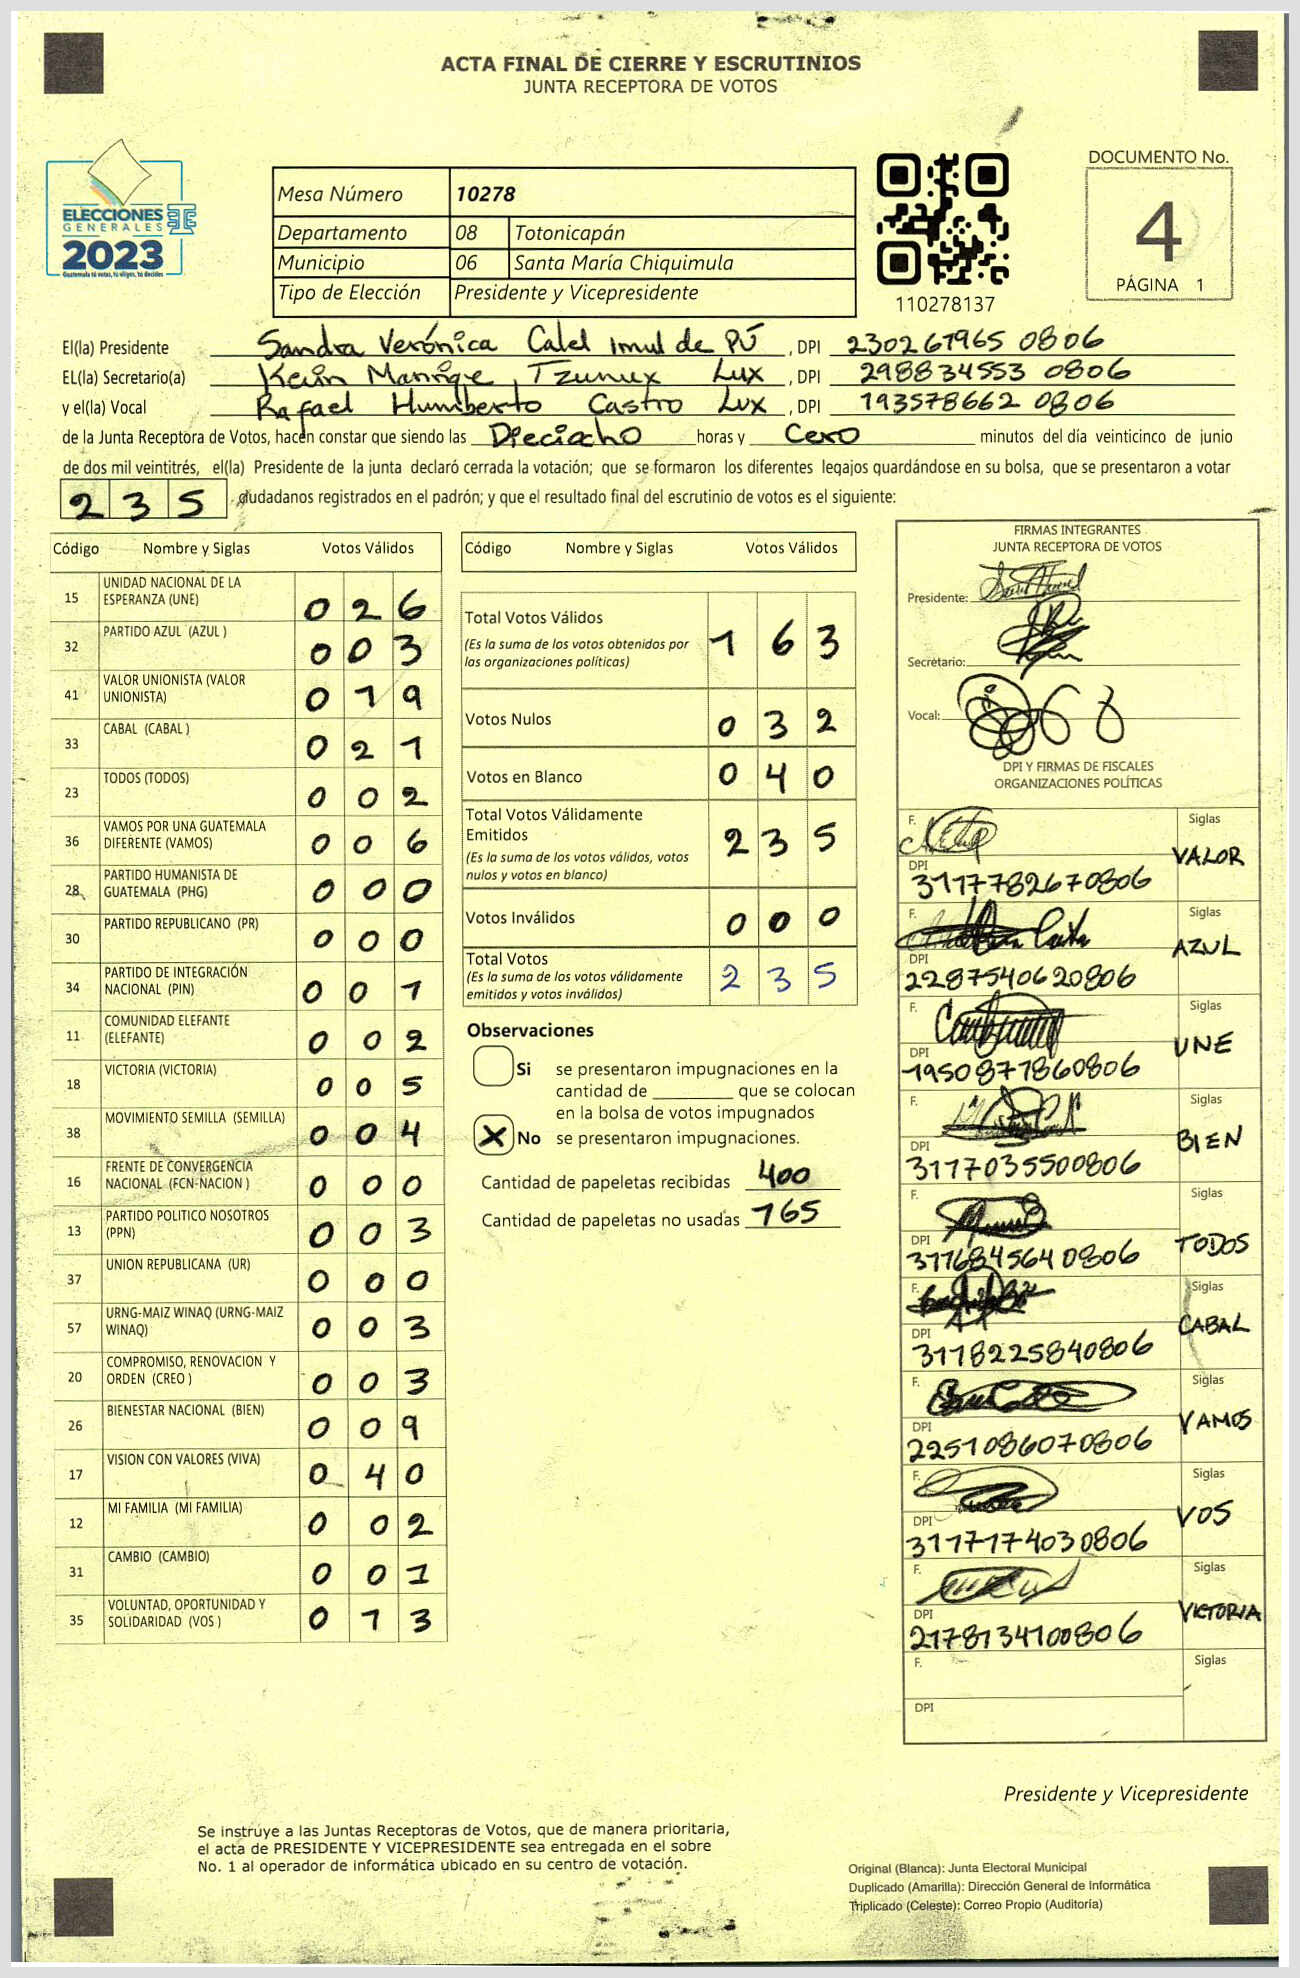 ACTA FINAL DE CIERRE Y ESCRUTINIOS
JUNTA RECEPTORA DE VOTOS
ELECCIONES
GENERALES
2023
Guatemala tú votas, tú eliges, tú decides
Mesa Número 10278
Departamento 08 Totonicapán
Municipio 06 Santa María Chiquimula
Tipo de Elección Presidente y Vicepresidente
110278137
DOCUMENTO No.
4
PÁGINA 1
El(la) Presidente Sandra Verónica Calel Imul de PÚ , DPI 230267965 0806
EL(la) Secretario(a) Kevin Manrique Tzunux Lux , DPI 298834553 0806
y el(la) Vocal Rafael Humberto Castro Lux , DPI 193578662 0806
de la Junta Receptora de Votos, hacen constar que siendo las Dieciocho horas y Cero minutos del día veinticinco de junio
de dos mil veintitrés, el(la) Presidente de la junta declaró cerrada la votación; que se formaron los diferentes legajos guardándose en su bolsa, que se presentaron a votar
235 ciudadanos registrados en el padrón; y que el resultado final del escrutinio de votos es el siguiente:
Código Nombre y Siglas Votos Válidos
15 UNIDAD NACIONAL DE LA ESPERANZA (UNE) 026
32 PARTIDO AZUL (AZUL ) 003
41 VALOR UNIONISTA (VALOR UNIONISTA) 019
33 CABAL (CABAL ) 021
23 TODOS (TODOS) 002
36 VAMOS POR UNA GUATEMALA DIFERENTE (VAMOS) 006
28 PARTIDO HUMANISTA DE GUATEMALA (PHG) 000
30 PARTIDO REPUBLICANO (PR) 000
34 PARTIDO DE INTEGRACIÓN NACIONAL (PIN) 001
11 COMUNIDAD ELEFANTE (ELEFANTE) 002
18 VICTORIA (VICTORIA) 005
38 MOVIMIENTO SEMILLA (SEMILLA) 004
16 FRENTE DE CONVERGENCIA NACIONAL (FCN-NACION ) 000
13 PARTIDO POLITICO NOSOTROS (PPN) 003
37 UNION REPUBLICANA (UR) 000
57 URNG-MAIZ WINAQ (URNG-MAIZ WINAQ) 003
20 COMPROMISO, RENOVACION Y ORDEN (CREO ) 003
26 BIENESTAR NACIONAL (BIEN) 009
17 VISION CON VALORES (VIVA) 040
12 MI FAMILIA (MI FAMILIA) 002
31 CAMBIO (CAMBIO) 001
35 VOLUNTAD, OPORTUNIDAD Y SOLIDARIDAD (VOS ) 013
Código Nombre y Siglas Votos Válidos
Total Votos Válidos 163
(Es la suma de los votos obtenidos por
las organizaciones políticas)
Votos Nulos 032
Votos en Blanco 040
Total Votos Válidamente
Emitidos 235
(Es la suma de los votos válidos, votos
nulos y votos en blanco)
Votos Inválidos 000
Total Votos 235
(Es la suma de los votos válidamente
emitidos y votos inválidos)
Observaciones
Si se presentaron impugnaciones en la
cantidad de ________ que se colocan
en la bolsa de votos impugnados
X No se presentaron impugnaciones.
Cantidad de papeletas recibidas 400
Cantidad de papeletas no usadas 165
FIRMAS INTEGRANTES
JUNTA RECEPTORA DE VOTOS
Presidente:
Secretario:
Vocal:
DPI Y FIRMAS DE FISCALES
ORGANIZACIONES POLÍTICAS
F. Siglas VALOR
DPI 3177782670806
F. Siglas AZUL
DPI 2287540620806
F. Siglas UNE
DPI 1950877860806
F. Siglas BIEN
DPI 3117035500806
F. Siglas TODOS
DPI 3116845640806
F. Siglas CABAL
DPI 3118225840806
F. Siglas VAMOS
DPI 2251086070806
F. Siglas VOS
DPI 3117174030806
F. Siglas VICTORIA
DPI 2178134100806
F. Siglas
DPI
Presidente y Vicepresidente
Se instruye a las Juntas Receptoras de Votos, que de manera prioritaria,
el acta de PRESIDENTE Y VICEPRESIDENTE sea entregada en el sobre
No. 1 al operador de informática ubicado en su centro de votación.
Original (Blanca): Junta Electoral Municipal
Duplicado (Amarilla): Dirección General de Informática
Triplicado (Celeste): Correo Propio (Auditoría)